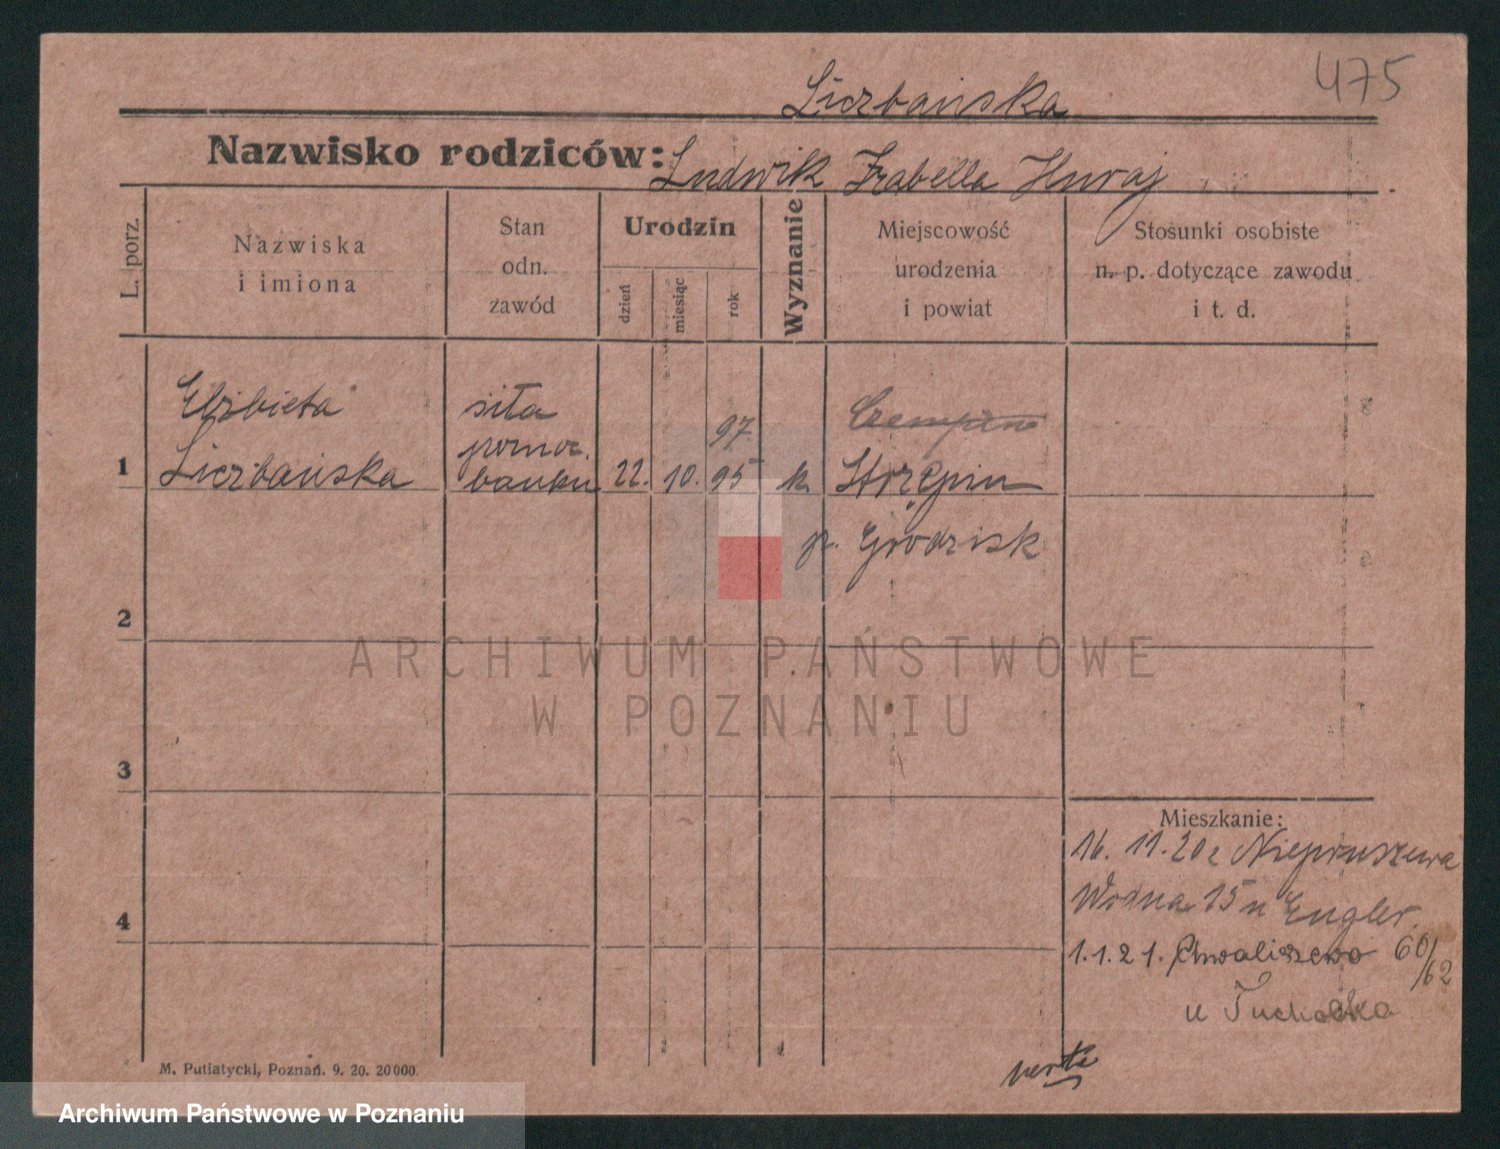 475
Liczbańska
Nazwisko rodziców: Ludwik Izabella Huraj
L. porz.
Nazwiska
i imiona
Stan
odn.
zawód
Urodzin
dzień
miesiąc
rok
Wyznanie
Miejscowość
urodzenia
i powiat
Stosunki osobiste
n. p. dotyczące zawodu
i t. d.
1
Elżbieta
Liczbańska
siła
pomoc.
banku
22.
10.
97
95
k.
Czempin
Strzępin
p. Grodzisk
2
3
4
Mieszkanie:
16. 11. 20 z Niepruszewa
Wodna 15 u Engler.
1.1.21. Chwaliszewo 60/62
u Tucholska
verte
M. Putiatycki, Poznań. 9. 20. 20000.
ARCHIWUM PAŃSTWOWE
W POZNANIU
Archiwum Państwowe w Poznaniu